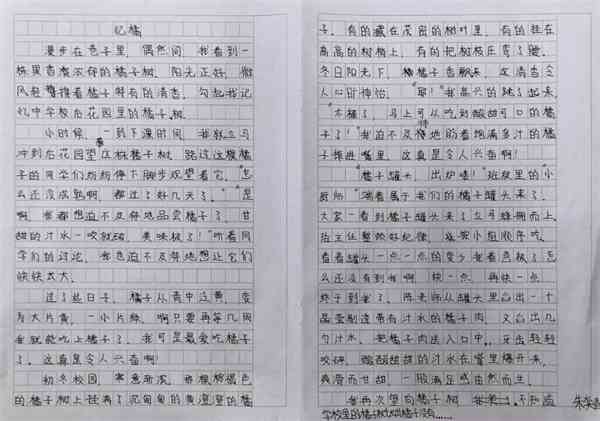 忆橘
漫步在巷子里，偶然间，我看到一
株果香浓郁的橘子树，阳光正好，微
风轻 着橘子特有的清香，勾起我记
忆中学校后花园里的橘子树。
小时候，一到下课时间，我就立马
冲到后花园望 这株橘子树，路过这棵橘
子的同学们纷纷停下脚步观望着它，“怎
么还没成熟啊，都过了好几天了。”“是
啊，我都想迫不及待地品尝橘子了，甘
甜的汁水一咬就破，美味极了！”听着同
学们的讨论，我也迫不及待地想让它们
快快长大。
过了些日子，橘子从青中泛黄，变
为大片黄，一小片绿，啊只要再等几周
我就能吃上橘子了，我可是最爱吃橘子
了，这真是令人兴奋啊！
初冬校园，寒意渐浓，那棵棕褐色
的橘子树上挂满了沉甸甸的黄澄澄的橘
子，有的藏在茂密的树叶里，有的挂在
高高的树梢上，有的把树枝压弯了腰。
冬日阳光下，橘子香飘来，这清香令
人心旷神怡，“耶！”我高兴的跳了起来，
“太棒了，马上可以吃到酸甜可口的橘
子了！”我迫不及待地 着饱满多汁的橘
子 进嘴里，这真是令人兴奋啊！
“橘子罐头，出炉喽！”班级里的“小
厨师”端着属于我们的橘子罐头来了。
大家一看到橘子罐头来了立马蜂拥而上，
班主任整顿好纪律， 小组顺序吃，
看着罐头一点一点的变少我着急极了怎
么还没有到我啊，快一点，再快一点。
终于到我了，陈老师从罐头里舀出一个
晶莹剔透带有汁水的橘子肉，又舀出几
勺汁水，把橘子肉送入口中，牙齿轻轻
咬碎，酸酸甜甜的汁水在嘴里爆开来，
爽滑而甘甜，一股满足感油然而生。
我再次望向橘子树， 不知道
学校里的橘子树 橘子没有……